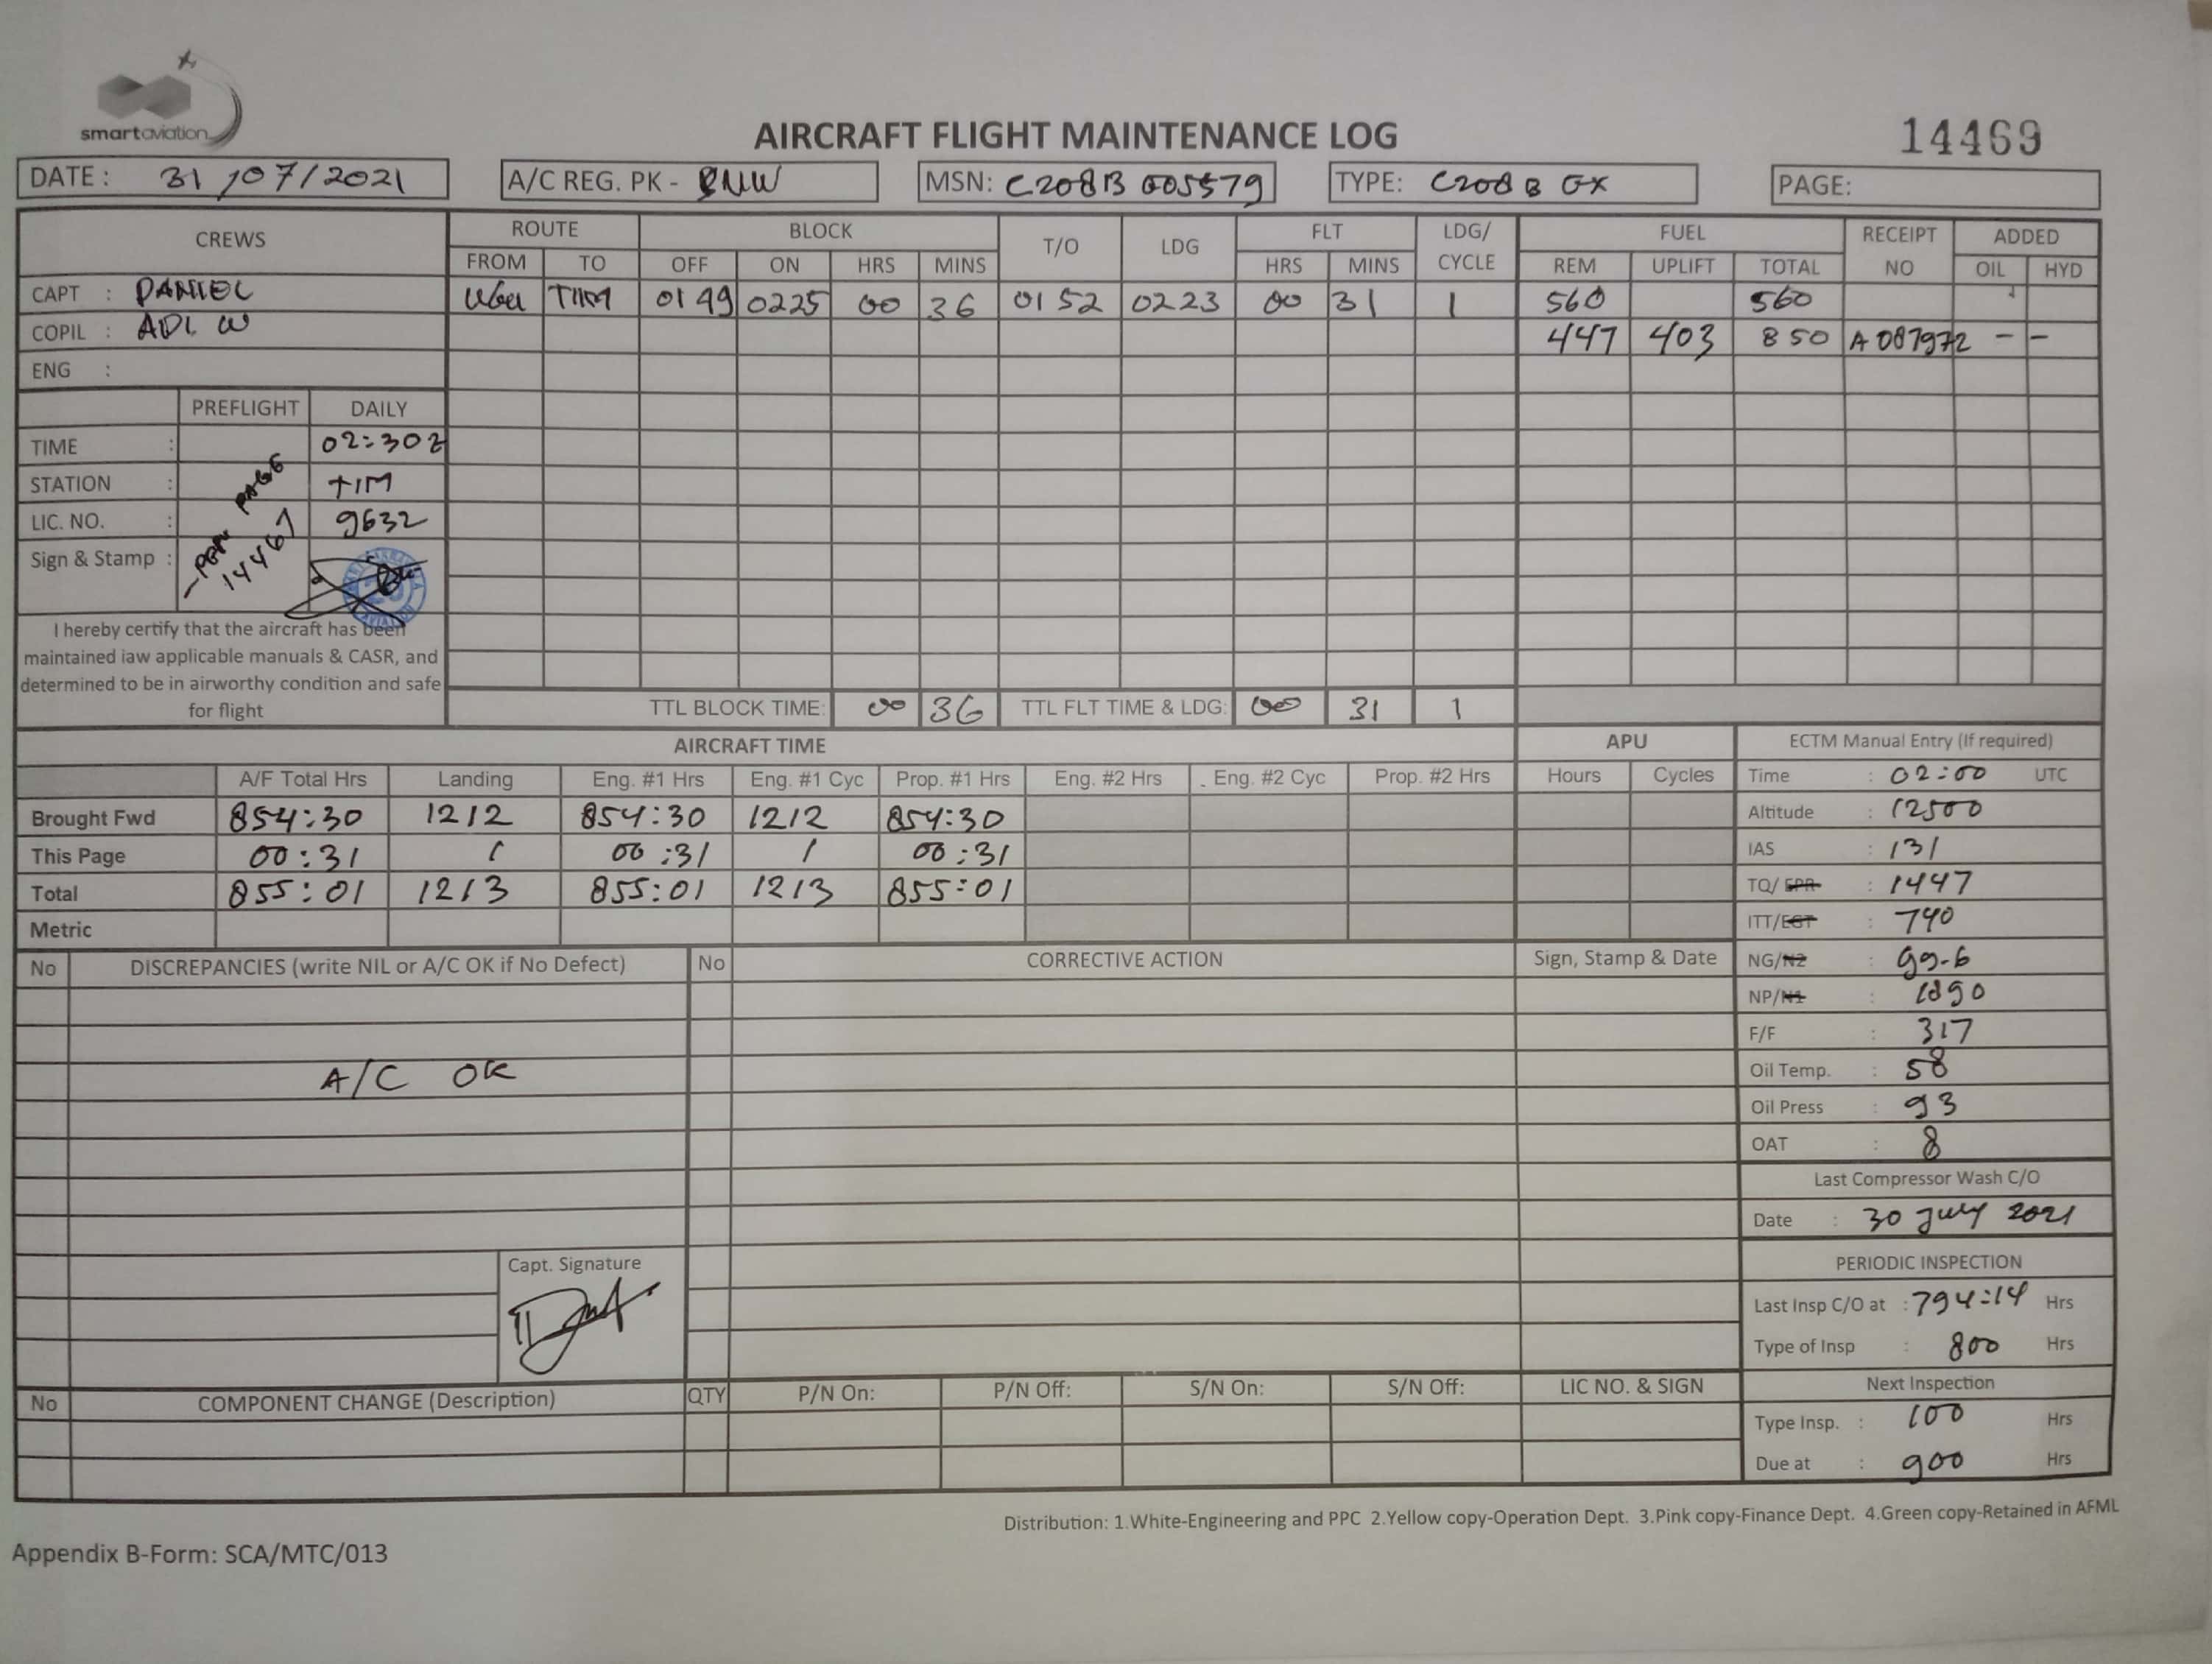 smartaviation
AIRCRAFT FLIGHT MAINTENANCE LOG
14469
DATE : 31/07/2021
A/C REG. PK -
MSN: C208B 005579
TYPE: C208 B GX
PAGE:
CREWS ROUTE BLOCK T/O LDG FLT LDG/ CYCLE FUEL RECEIPT NO ADDED
FROM TO OFF ON HRS MINS HRS MINS REM UPLIFT TOTAL OIL HYD
CAPT : DANIEL
COPIL : ADI W
ENG :
TIM 0149 0225 00 36 0152 0223 00 31 1 560 560
447 403 850 A087972 - -
PREFLIGHT DAILY
TIME : 02:30Z
STATION : TIM
LIC. NO. : 9632
Sign & Stamp :
PAGE
14467
I hereby certify that the aircraft has been
maintained iaw applicable manuals & CASR, and
determined to be in airworthy condition and safe
for flight
TTL BLOCK TIME: 00 36 TTL FLT TIME & LDG: 00 31 1
AIRCRAFT TIME APU
A/F Total Hrs Landing Eng. #1 Hrs Eng. #1 Cyc Prop. #1 Hrs Eng. #2 Hrs Eng. #2 Cyc Prop. #2 Hrs Hours Cycles
Brought Fwd 854:30 1212 854:30 1212 854:30
This Page 00:31 1 00:31 1 00:31
Total 855:01 1213 855:01 1213 855:01
Metric
ECTM Manual Entry (If required)
Time : 02:00 UTC
Altitude : 12500
IAS : 131
TQ/EPR : 1447
ITT/EGT : 740
NG/N2 : 99.6
NP/N1 : 1890
F/F : 317
Oil Temp. : 58
Oil Press : 93
OAT : 8
Last Compressor Wash C/O
Date : 30 July 2021
PERIODIC INSPECTION
Last Insp C/O at : 794:14 Hrs
Type of Insp : 800 Hrs
Next Inspection
Type Insp. : 100 Hrs
Due at : 900 Hrs
No DISCREPANCIES (write NIL or A/C OK if No Defect) No CORRECTIVE ACTION Sign, Stamp & Date
A/C OK
Capt. Signature
No COMPONENT CHANGE (Description) QTY P/N On: P/N Off: S/N On: S/N Off: LIC NO. & SIGN
Distribution: 1.White-Engineering and PPC 2.Yellow copy-Operation Dept. 3.Pink copy-Finance Dept. 4.Green copy-Retained in AFML
Appendix B-Form: SCA/MTC/013